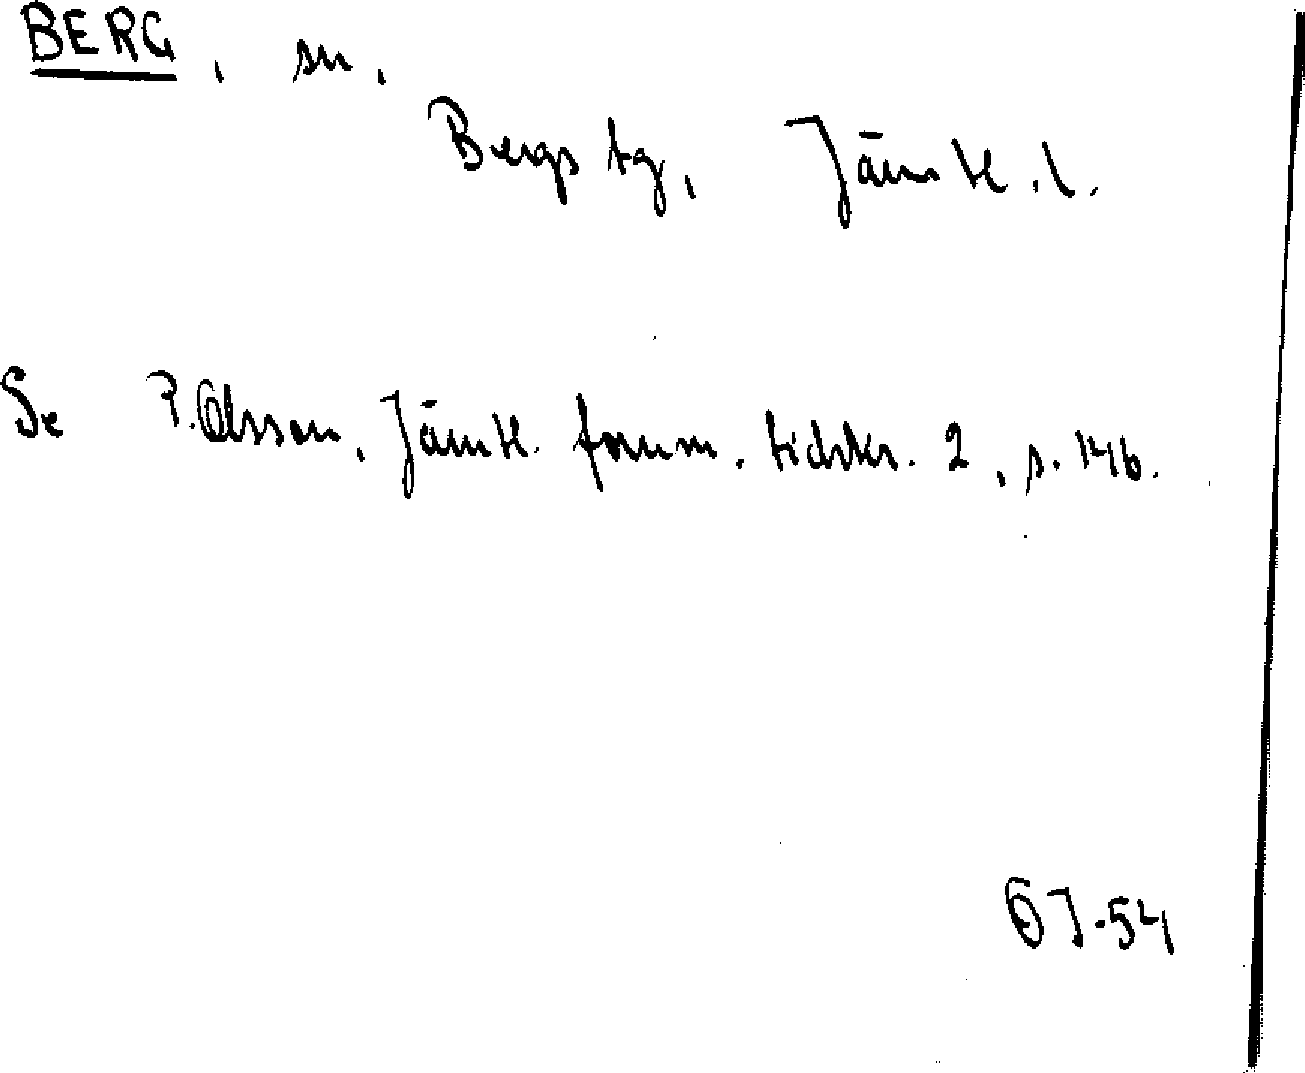 BERG, sn,
Bergs tg, Jämtl. l.
Se P. Olsson, Jämtl. fornm. tidskr. 2, s. 146.
ÖJ-54